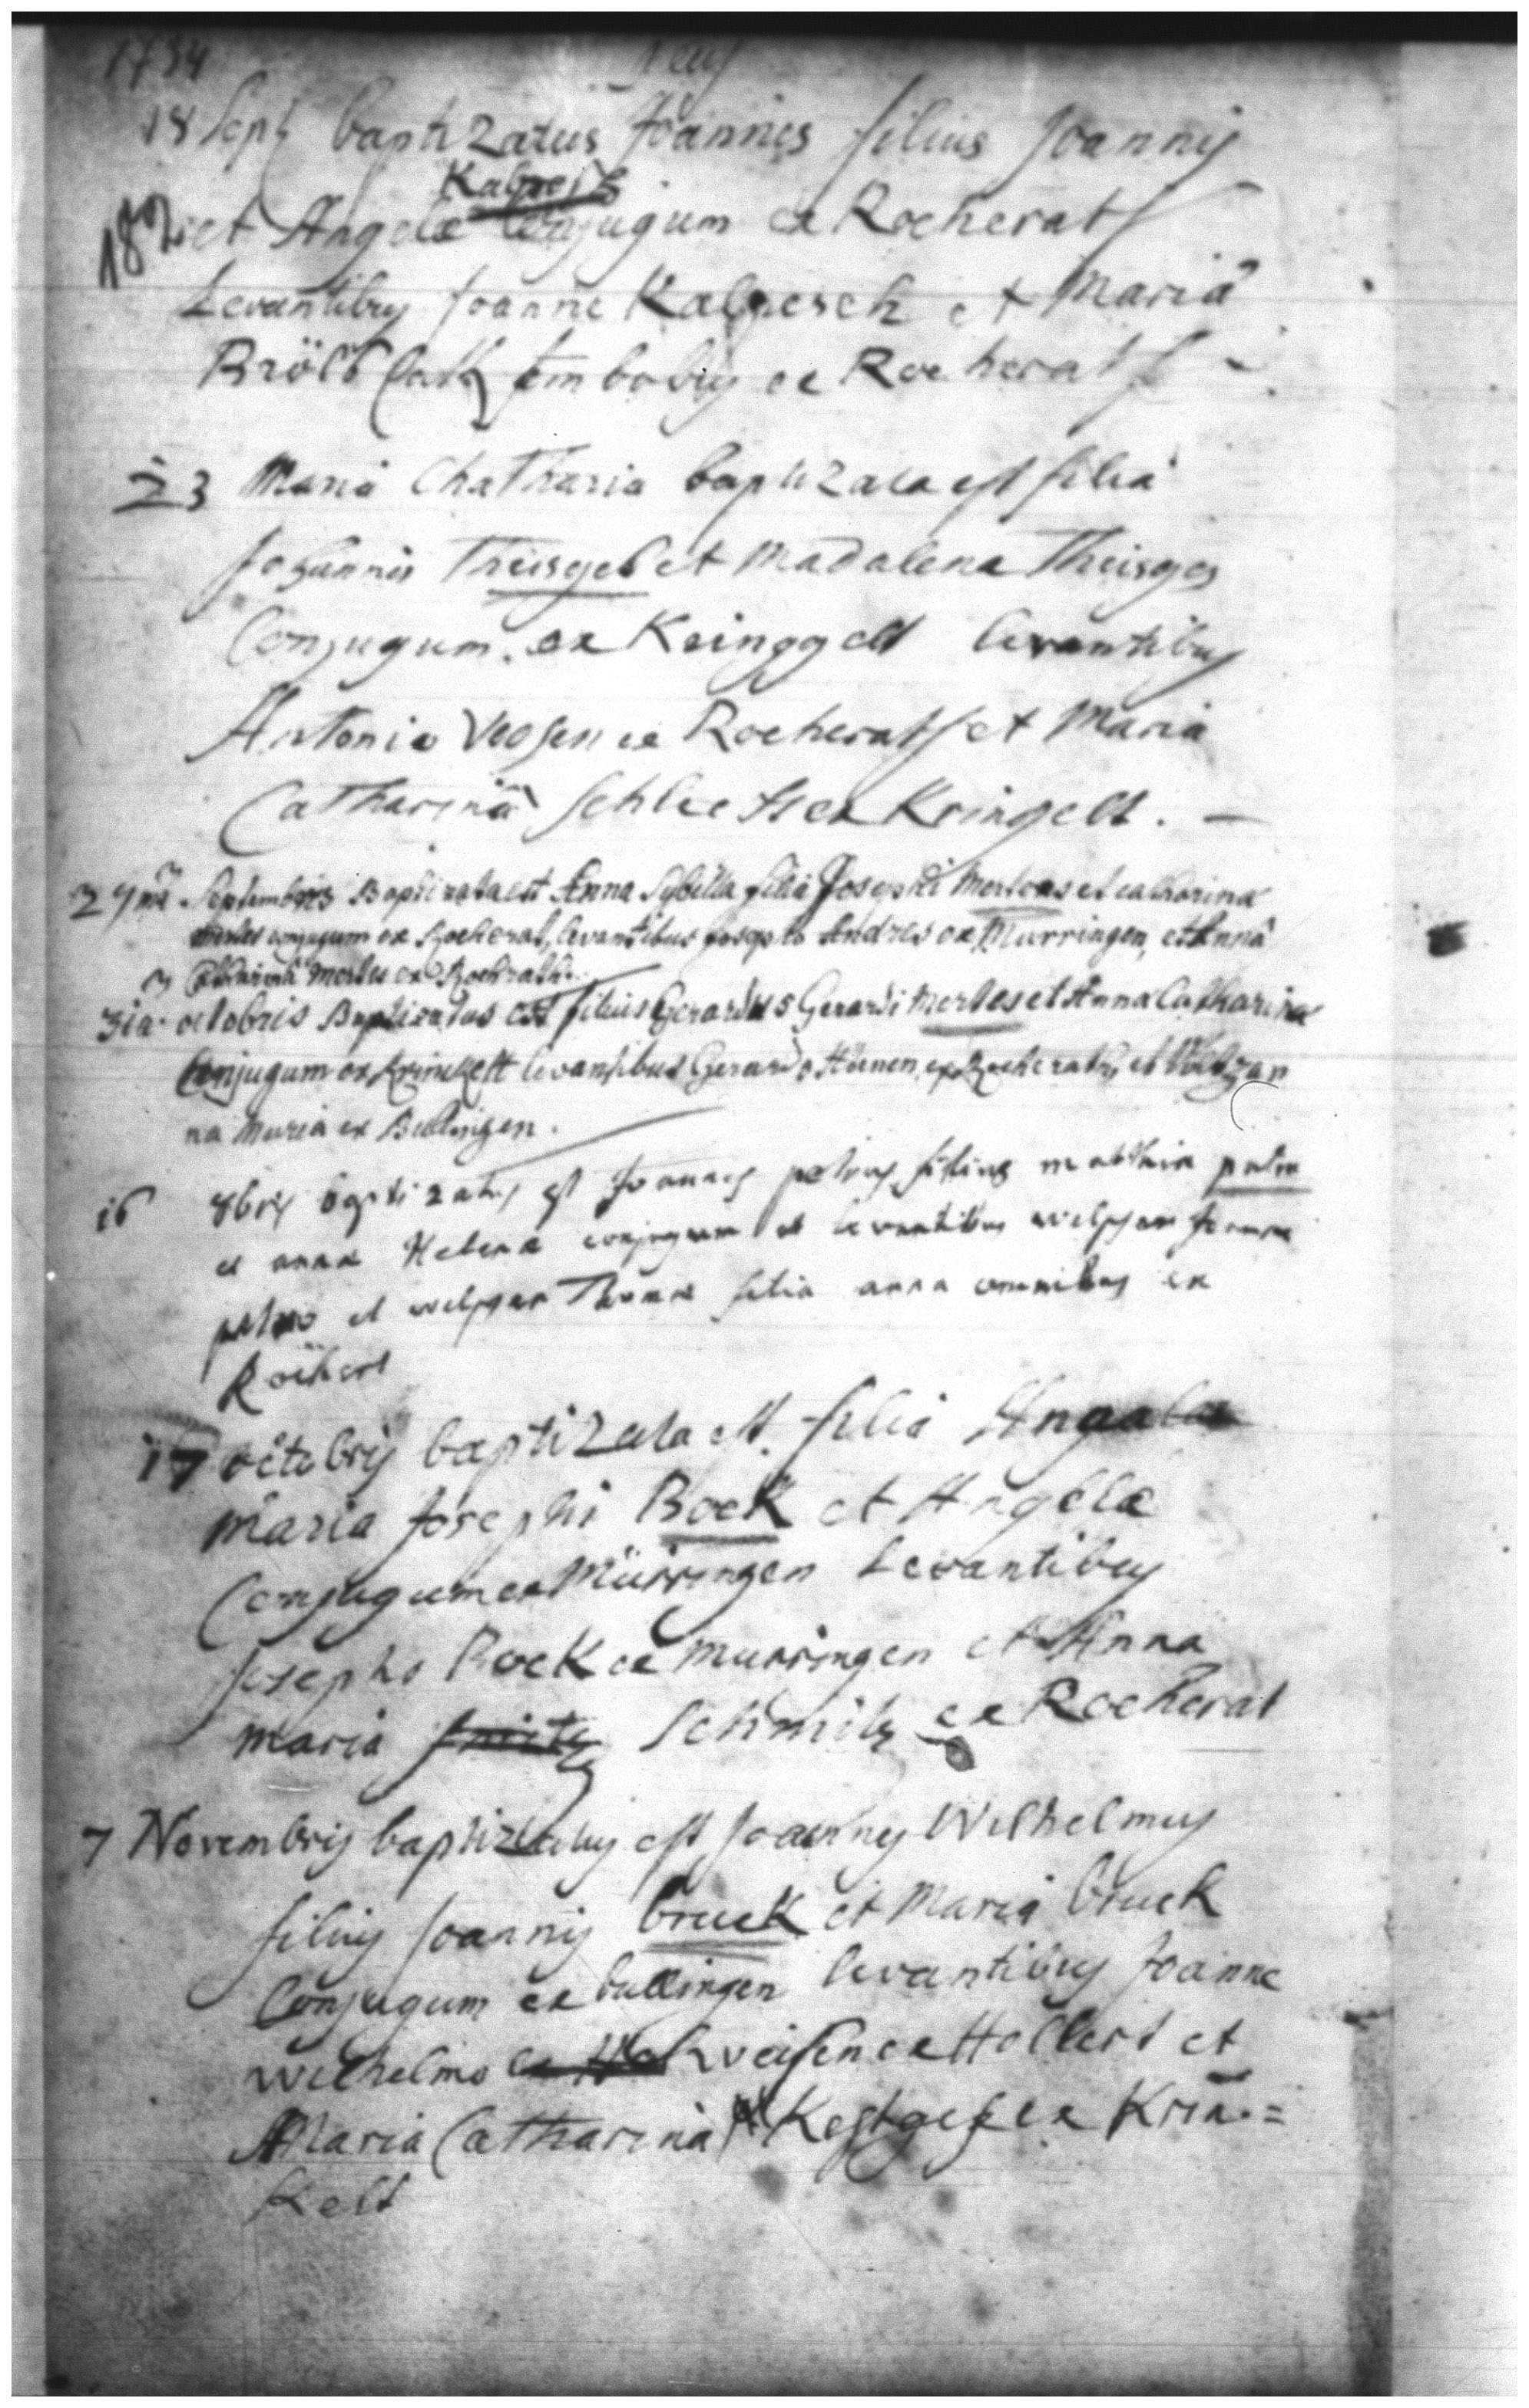 1734
18 Sept baptizatus Joannes filius Joannis
Kalpeis
et Angelæ Conjugum ex Rocherat
Levantibus Joanne Kalpesch et Mariâ
Bröls ambobus ex Rocherat
23 Maria Chatharia baptizata est filia
Johannis Theisges et Madalena Theisges
Conjugum ex Kringgelt levantibus
Antonio Veosen ex Rocherath et Maria
Catharinâ Schlects ex Kringelt. —
29na Septembris Baptizata est Anna Sybilla filia Josephi Mertens et catharina
mertes conjugum ex Rocherat, levantibus Josepho Andres ex Mürringen, et Annâ
Catharinâ Mertes ex Rochrath.
3ia octobris Baptizatus est filius Gerardus Gerardi Mertes et Anna Catharina
Conjugum ex Krinckelt levantibus Gerardo Hönen ex Rocherath, et
na Maria ex Bullingen.
16 8bris bgptizatus est Joannes petrus filius matthia palm
et anna Helena conjugum et levantibus welsgen Joanne
petro et welsgen Thoma filia anna omnibus ex
Röcherat
17 octobris baptizata est filia Angala
maria Josephi Bock et Angelæ
Conjugum ex Mürringen Levantibus
Josepho Bock ex murringen et Anna
maria Smitz Schmitz ex Rocherat
7 Novembris baptizatus est Joannes Wilhelmus
filius Joannis bruck et Maria bruck
Conjugum ex bullingen levantibus Joanne
wilhelmo veisen ex Hollert et
Maria Catharina Kestges ex Krin=
Kelt